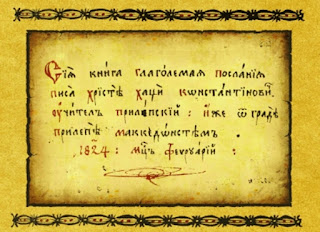 Сїѧ книга глаголемаѧ посланиѧ
писа хрїстѣ хаџи кѡнстантїнови:
ѹчитель прилѣпскїй: иже ѿ градѣ
прилепѣ маккедѡнстѣм.
1824: мць феѵруарїй: